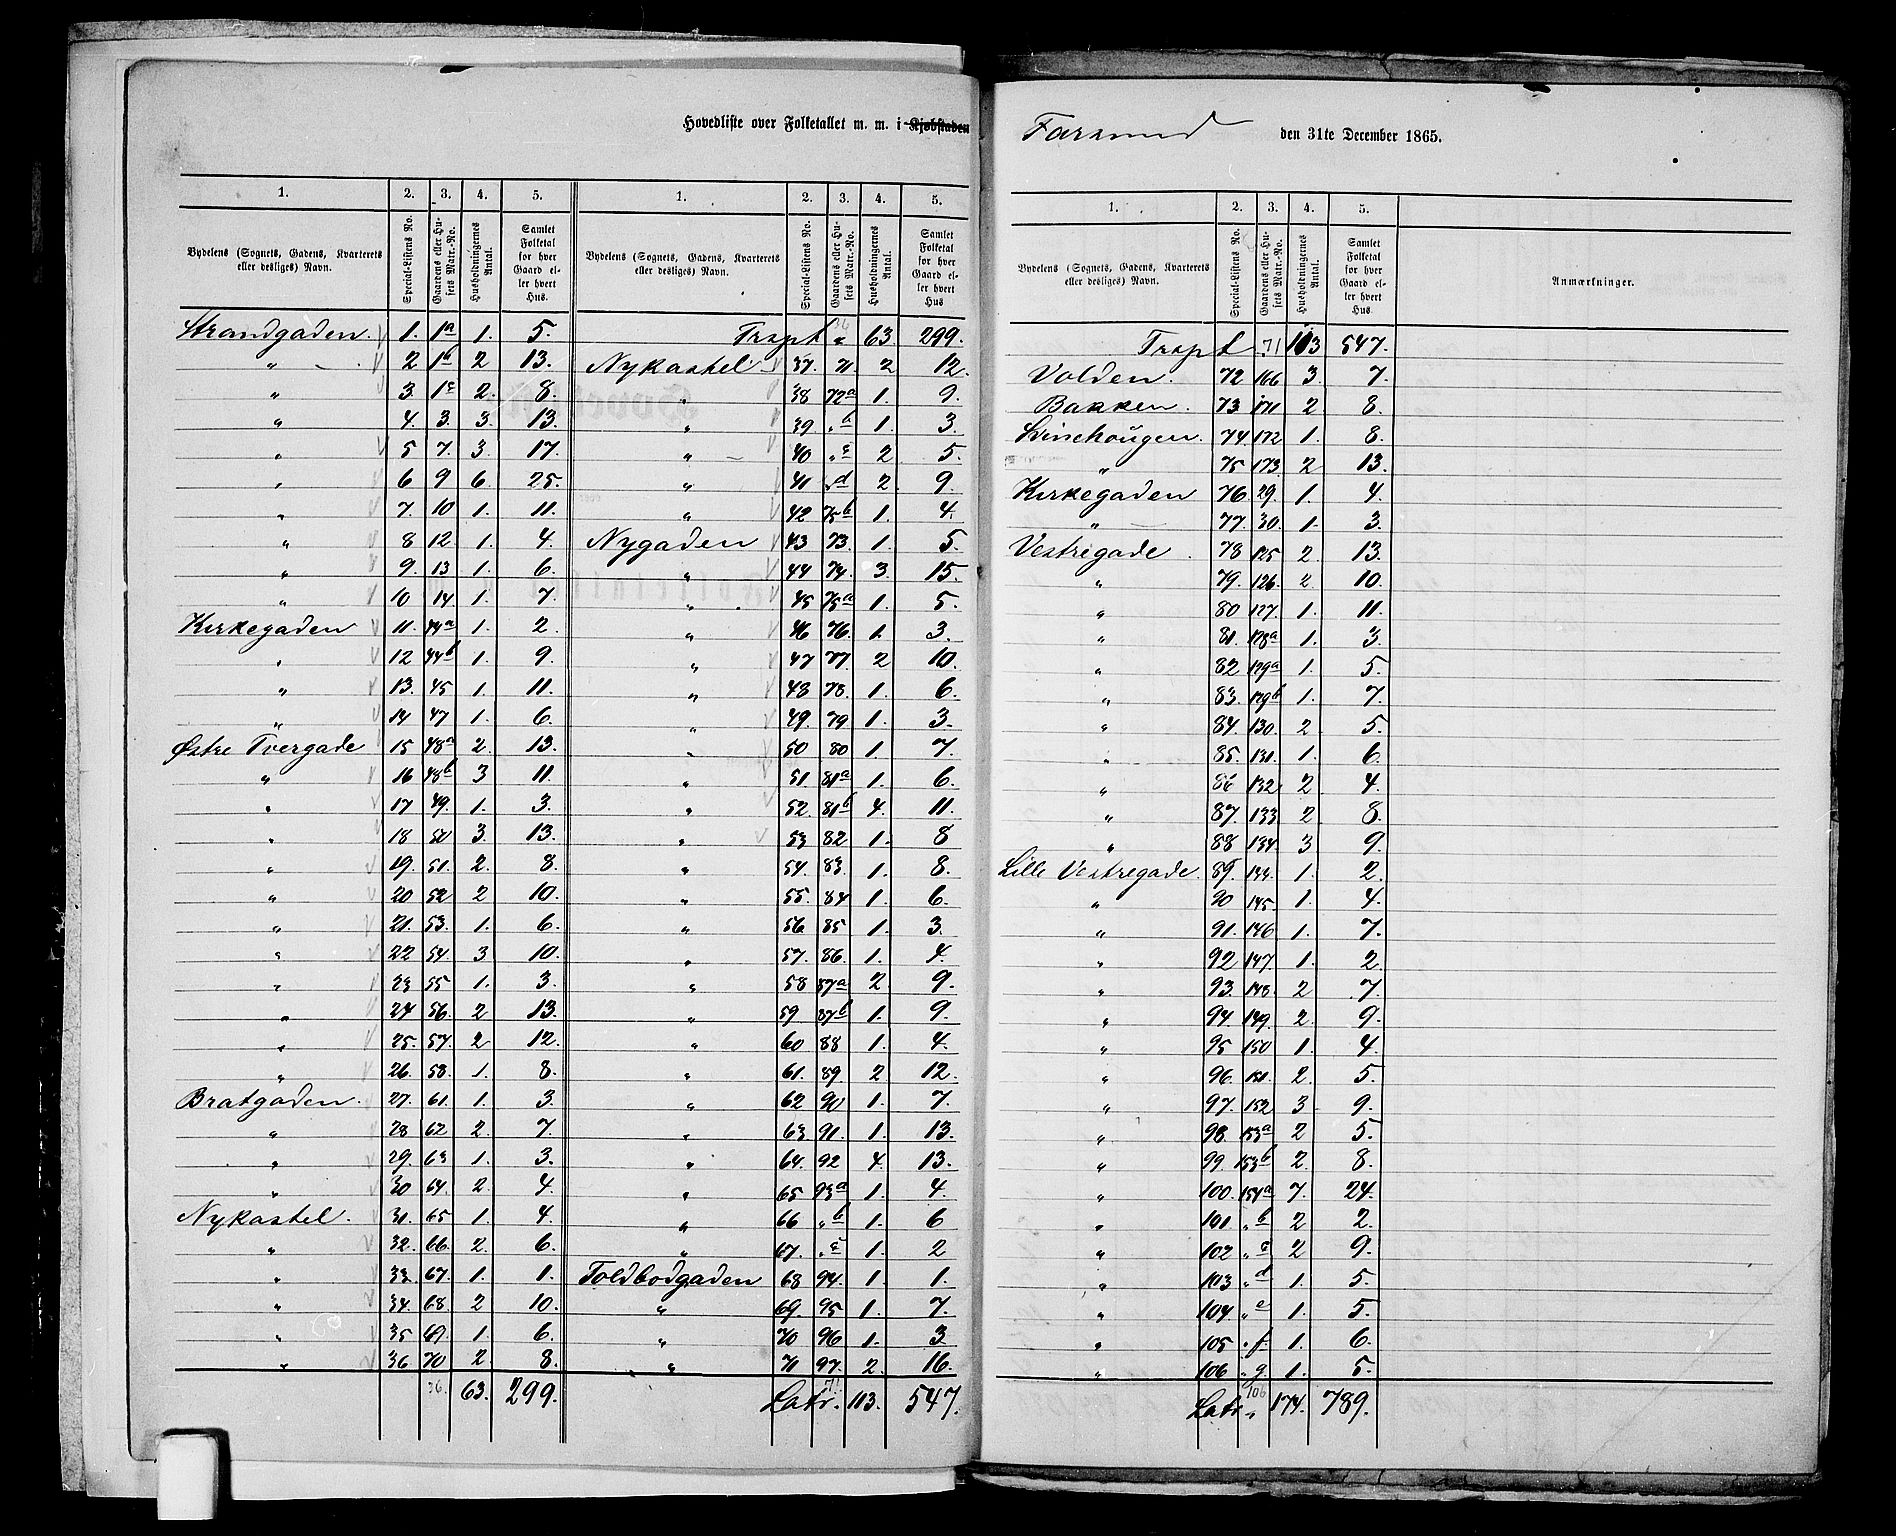 Hovedliste over Folketallet m. m. i Kjøbstaden Farsund den 31te December 1865.
1. 2. 3. 4. 5. 1. 2. 3. 4. 5.
Bydelens (Sognets, Gadens, Kvarterets eller desliges) Navn. Special-Listens No. Gaardens eller Husets Matr.-No. Husholdningernes Antal. Samlet Folketal for hver Gaard eller hvert Hus. Bydelens (Sognets, Gadens, Kvarterets eller desliges) Navn. Special-Listens No. Gaardens eller Husets Matr.-No. Husholdningernes Antal. Samlet Folketal for hver Gaard eller hvert Hus
Strandgaden. 1. 1a 1. 5. Trspt 36 „ 63. 299.
„ 2 1b 2 13. Nykastel 37. 71. 2 12.
„ 3. 1c 2. 8. „ 38 72a 1. 9.
„ 4. 3. 3. 13. „ 39. „b 1. 3.
„ 5 7. 3. 17. „ 40 „c 2 5.
„ 6 9 6. 25. „ 41 „d 2. 9.
„ 7. 10 1. 11. „ 42 75b 1. 4.
„ 8 12. 1. 4. Nygaden 43 73. 1. 5.
„ 9. 13 1. 6. „ 44 74. 3. 15.
„ 10 14. 1. 7. „ 45 75a 1. 5.
Kirkegaden 11. 44a 1. 2. „ 46 76. 1. 3.
„ 12 44b 1. 9. „ 47 77. 2 10.
„ 13. 45 1. 11. „ 48 78. 1. 6.
„ 14 47 1. 6. „ 49. 79 1. 3.
Østre Tvergade 15 48a 2. 13. „ 50 80 1. 7.
„ 16 48b 3 11. „ 51. 81a 1. 6.
„ 17 49. 1. 3. „ 52. 81b 4. 11.
„ 18 50 3. 13. „ 53 82 1. 8
„ 19. 51. 2. 8. „ 54. 83. 1. 8.
„ 20 52 2 10. „ 55. 84 1. 6.
„ 21. 53. 1. 6. „ 56 85 1. 3.
„ 22 54. 3 10. „ 57. 86. 1. 4.
„ 23 55 1. 3. „ 58 87a 2. 9.
„ 24 56. 2 13. „ 59 87b 1. 9.
„ 25. 57. 2 12. „ 60 88 1. 4.
„ 26. 58. 1. 8. „ 61. 89. 2 12.
Bratgaden. 27. 61. 1. 3. „ 62 90 1. 7.
„ 28 62 2. 7. „ 63 91. 1. 13.
„ 29. 63 1. 3. „ 64. 92 4. 13.
„ 30 64. 2. 4. „ 65 93a 1. 4.
Nykastel. 31. 65 1. 4. „ 66 „b 1. 6
„ 32. 66. 2. 6. „ 67. „c 1. 2
„ 33. 67. 1. 1. Toldbodgaden 68 94. 1. 1.
„ 34. 68. 2 10. „ 69. 95 1. 7.
„ 35 69. 1. 6. „ 70 96 1. 3
„ 36 70 2 8. „ 71 97. 2. 16.
36. 63. 299. Latr. 71 113. 547.
1. 2. 3. 4. 5.
Bydelens (Sognets, Gadens, Kvarterets eller desliges) Navn. Special-Listens No. Gaardens eller Husets Matr.-No. Husholdningernes Antal. Samlet Folketal for hver Gaard eller hvert Hus. Anmærkninger.
Trspt 71 113 547.
Volden. 72 166 3. 7.
Bakken. 73 171 2. 8.
Svinehougen. 74. 172 1. 8.
„ 75 173 2 13.
Kirkegaden 76. 29. 1. 4.
„ 77. 30. 1. 3.
Vestregade. 78 125 2. 13.
„ 79. 126. 2. 10.
„ 80 127. 1. 11.
„ 81. 128a 1. 3.
„ 82 129a 1. 5.
„ 83. 129b 1. 7.
„ 84. 130. 2. 5.
„ 85. 131. 1. 6.
„ 86 132. 2 4.
„ 87. 133. 2. 8.
„ 88 134. 3 9.
Lille Vestregade. 89. 144. 1. 2.
„ 90 145. 1. 4.
„ 91. 146 1. 7.
„ 92 147. 1. 2.
„ 93. 148. 2 7.
„ 94. 149. 2. 9.
„ 95 150 1. 4.
„ 96. 151. 2. 5.
„ 97. 152 3 9.
„ 98. 153a 2 5.
„ 99. 153b 2. 8.
„ 100. 154a 7. 24.
„ 101. „b 2 2.
„ 102 „c 2 9.
„ 103 „d 1. 5.
„ 104 „e 1. 5.
„ 105 „f. 1. 6.
„ 106 „g. 1. 5.
Latr. 106 174. 789.